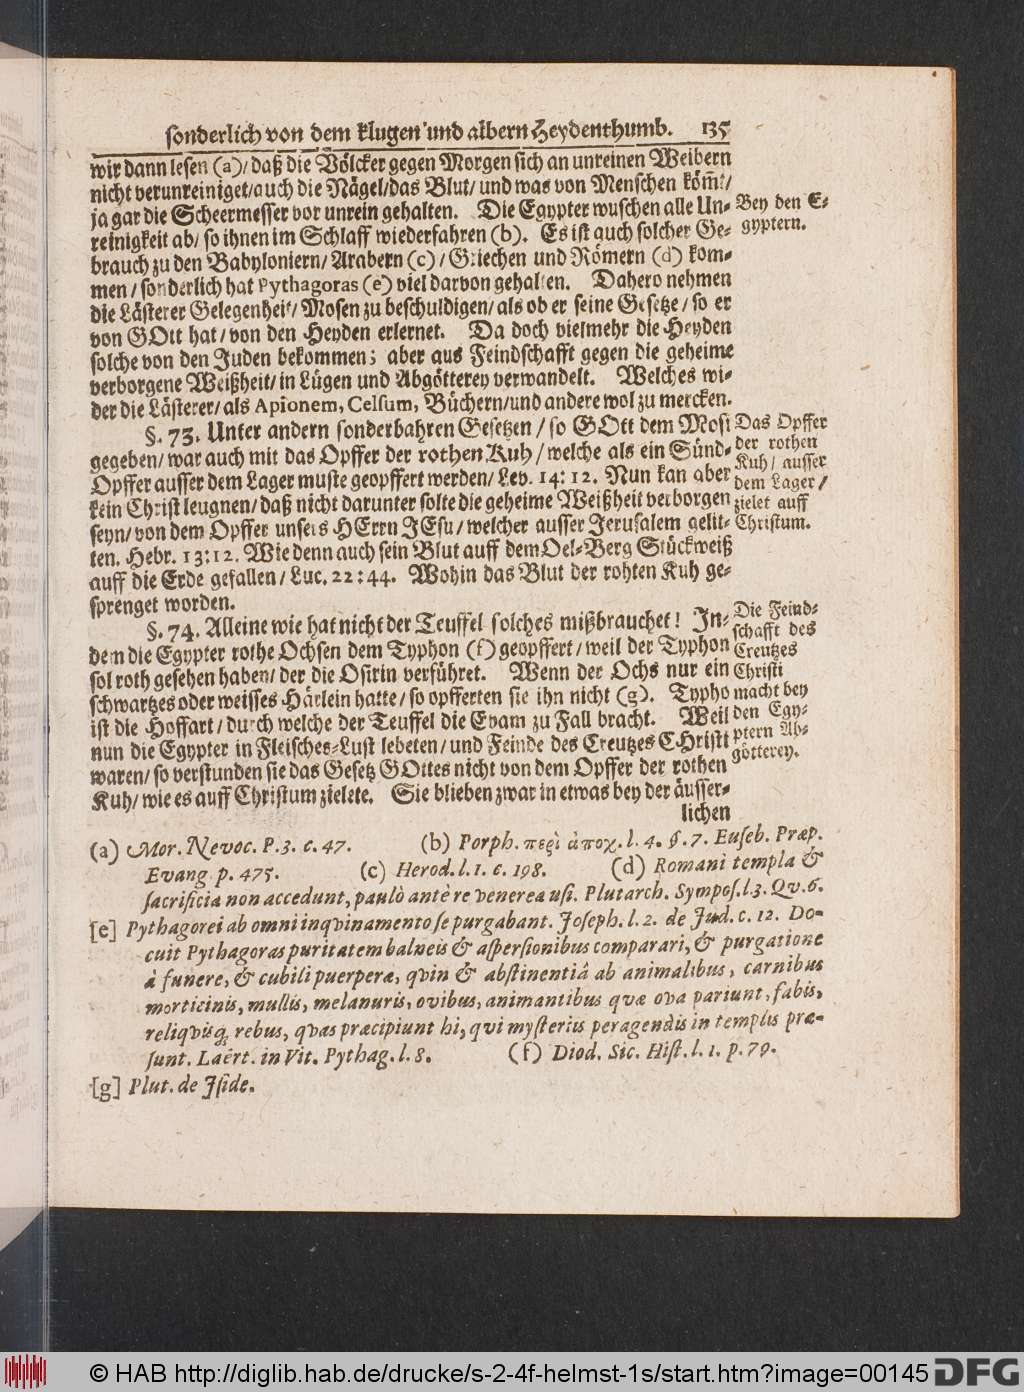 sonderlich von dem klugen und albern Heydenthumb. 135
wir dann lesen (a)/ daß die Völcker gegen Morgen sich an unreinen Weibern
nicht verunreiniget/auch die Nägel/das Blut/ und was von Menschen köm̃t/
ja gar die Scheermesser vor unrein gehalten. Die Egypter wuschen alle Un-
reinigkeit ab/ so ihnen im Schlaff wiederfahren (b). Es ist auch solcher Ge-
brauch zu den Babyloniern/ Arabern (c)/ Griechen und Römern (d) kom-
men/ sonderlich hat Pythagoras (e) viel darvon gehalten. Dahero nehmen
die Lästerer Gelegenheit/ Mosen zu beschuldigen/ als ob er seine Gesetze/ so er
von GOtt hat/ von den Heyden erlernet. Da doch vielmehr die Heyden
solche von den Juden bekommen; aber aus Feindschafft gegen die geheime
verborgene Weißheit/ in Lügen und Abgötterey verwandelt. Welches wi-
der die Lästerer/ als Apionem, Celsum, Büchern/und andere wol zu mercken.
Bey den E-
gyptern.
§. 73. Unter andern sonderbahren Gesetzen/ so GOtt dem Mosi
gegeben/ war auch mit das Opffer der rothen Kuh/ welche als ein Sünd-
Opffer ausser dem Lager muste geopffert werden/ Lev. 14: 12. Nun kan aber
kein Christ leugnen/ daß nicht darunter solte die geheime Weißheit verborgen
seyn/ von dem Opffer unsers HErrn JEsu/ welcher ausser Jerusalem gelit-
ten. Hebr. 13:12. Wie denn auch sein Blut auff dem Oel-Berg Stückweiß
auff die Erde gefallen/ Luc. 22:44. Wohin das Blut der rohten Kuh ge-
sprenget worden.
Das Opffer
der rothen
Kuh/ ausser
dem Lager/
zielet auff
Christum.
§. 74. Alleine wie hat nicht der Teuffel solches mißbrauchet! In-
dem die Egypter rothe Ochsen dem Typhon (f) geopffert/ weil der Typhon
sol roth gesehen haben/ der die Osirin verführet. Wenn der Ochs nur ein
schwartzes oder weisses Härlein hatte/ so opfferten sie ihn nicht (g). Typho
ist die Hoffart/ durch welche der Teuffel die Evam zu Fall bracht. Weil
nun die Egypter in Fleisches-Lust lebeten/ und Feinde des Creutzes CHristi
waren/ so verstunden sie das Gesetz GOttes nicht von dem Opffer der rothen
Kuh/ wie es auff Christum zielete. Sie blieben zwar in etwas bey der äusser-
lichen
Die Feind-
schafft des
Creutzes
Christi
macht bey
den Egy-
ptern Ab-
götterey.
(a) Mor. Nevoc. P. 3. c. 47. (b) Porph. περὶ ἀποχ. l. 4. §. 7. Euseb. Præp.
Evang p. 475. (c) Herod. l. 1. c. 198. (d) Romani templa &
sacrificia non accedunt, paulò antè re venerea usi. Plutarch. Sympos. l. 3. Qv. 6.
[e] Pythagorei ab omni inqvinamento se purgabant. Joseph. l. 2. de Jud. c. 12. Do-
cuit Pythagoras puritatem balneis & aspersionibus comparari, & purgatione
à funere, & cubili puerperæ, qvin & abstinentiâ ab animalibus, carnibus
morticinis, mullis, melanuris, ovibus, animantibus quæ ova pariunt, fabis,
reliqvisq; rebus, qvas præcipiunt hi, qvi mysteriis peragendis in templis præ-
sunt. Laërt. in Vit. Pythag. l. 8. (f) Diod. Sic. Hist. l. 1. p. 79.
[g] Plut. de Iside.
© HAB http://diglib.hab.de/drucke/s-2-4f-helmst-1s/start.htm?image=00145 DFG